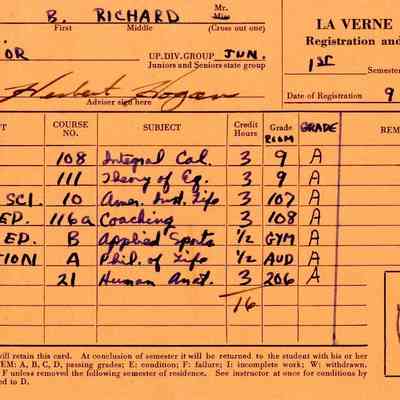 B. RICHARD Mr.
First Middle (Cross out one)
LA VERNE
Registration and
OR UP. DIV. GROUP JUN.
Juniors and Seniors state group
1ST Semester
Herbert Hogan
Adviser sign here
Date of Registration 9
T COURSE NO. SUBJECT Credit Hours Grade ROOM GRADE REM
108 Integral Cal. 3 9 A
111 Theory of Eq. 3 9 A
SCI. 10 Amer. Inst. Life 3 107 A
ED. 116a Coaching 3 108 A
ED. B Applied Sports 1/2 GYM A
TION A Phil. of Life 1/2 AUD A
21 Human Anat. 3 206 A
16
will retain this card. At conclusion of semester it will be returned to the student with his or her
EM: A, B, C, D, passing grades; E: condition; F: failure; I: incomplete work; W: withdrawn,
F unless removed the following semester of residence. See instructor at once for conditions by
ed to D.